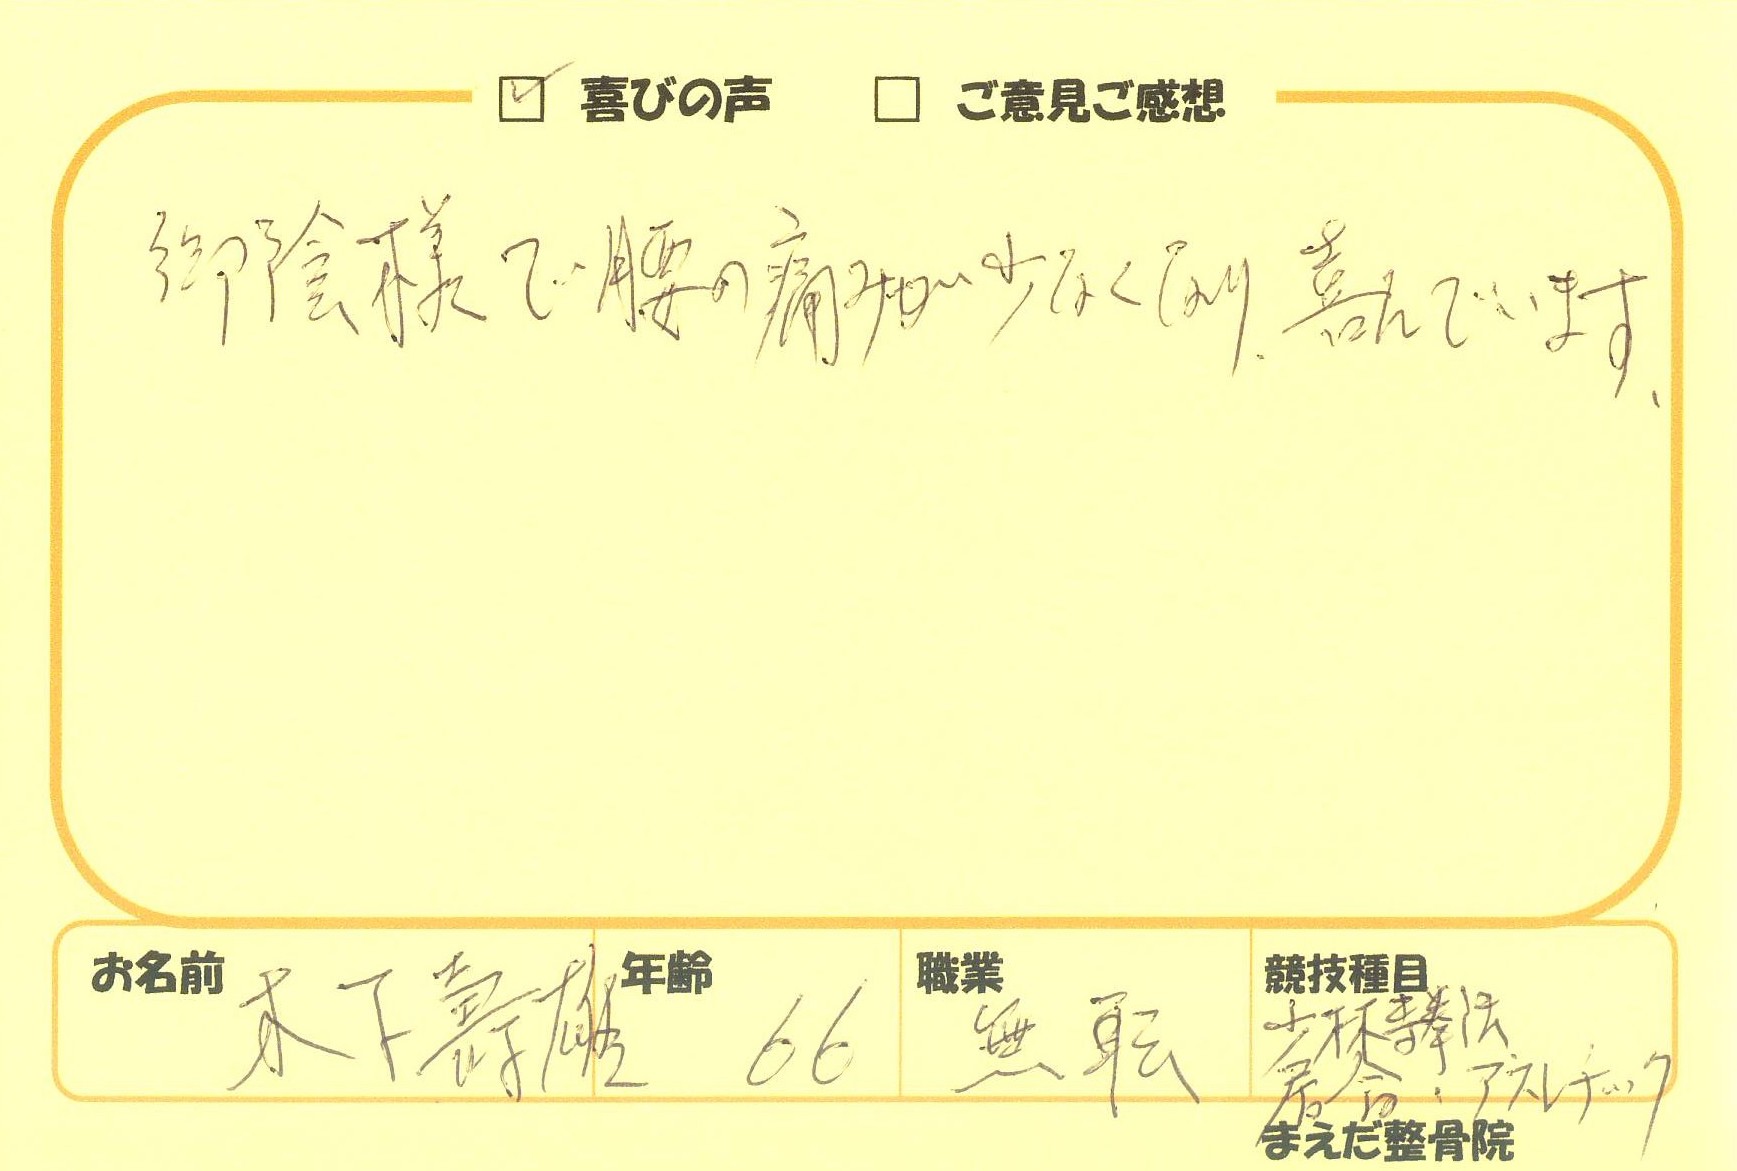 喜びの声 ご意見ご感想
御陰様で腰の痛みが少なくなり、喜んでいます、
お名前 木下壽雄 年齢 66 職業 無職 競技種目
少林寺拳法
居合・アスレチック
まえだ整骨院